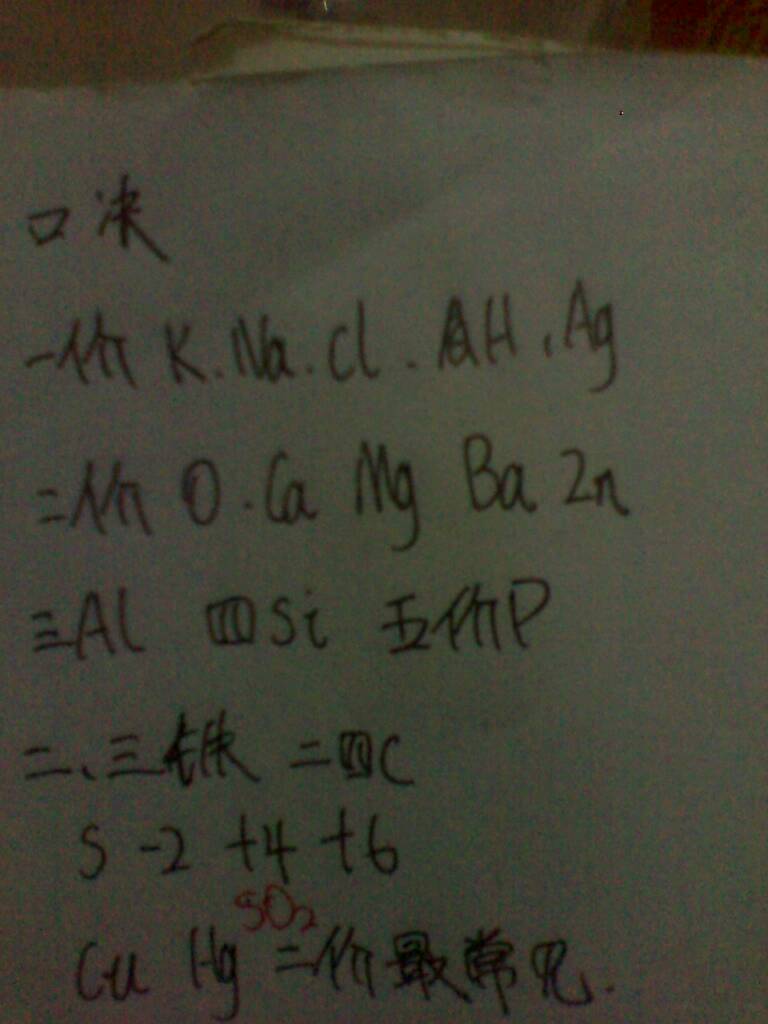 口决
一价 K.Na.Cl.AH.Ag
二价 O.Ca Mg Ba Zn
三Al 四Si 五价P
二、三铁 二四C
S -2 +4 +6
SO₂
Cu Hg 二价最常见.